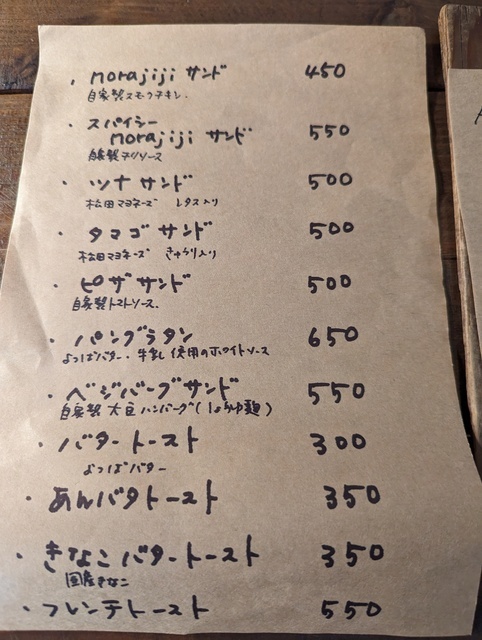 ・morajiji サンド 450
自家製スモークチキン.
・スパイシー
morajiji サンド 550
自家製チリソース
・ツナ サンド 500
松田マヨネーズ レタス入り
・タマゴ サンド 500
松田マヨネーズ きゅうり入り
・ピザサンド 500
自家製トマトソース.
・パングラタン 650
よつばバター・牛乳 使用のホワイトソース
・ベジバーグサンド 550
自家製 大豆ハンバーグ(しょうゆ麹)
・バター トースト 300
よつばバター
・あんバタトースト 350
・きなこ バタートースト 350
国産きなこ
・フレンチトースト 550